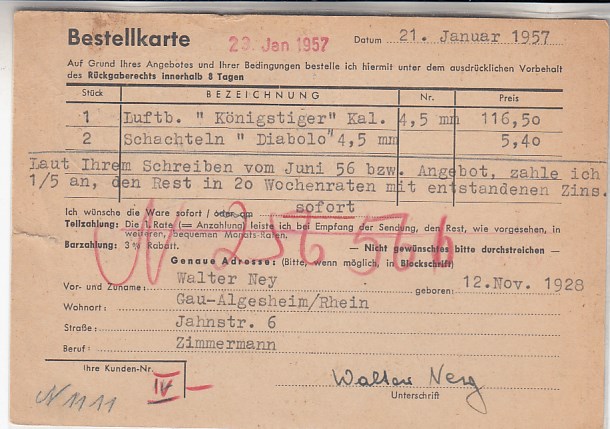 Bestellkarte
23. Jan 1957
Datum 21. Januar 1957
Auf Grund Ihres Angebotes und Ihrer Bedingungen bestelle ich hiermit unter dem ausdrücklichen Vorbehalt
des Rückgaberechts innerhalb 8 Tagen
Stück BEZEICHNUNG Nr. Preis
1 Luftb. " Königstiger" Kal. 4,5 mm 116,50
2 Schachteln " Diabolo" 4,5 mm 5,40
Laut Ihrem Schreiben vom Juni 56 bzw. Angebot, zahle ich
1/5 an, den Rest in 20 Wochenraten mit entstandenen Zins.
Ich wünsche die Ware sofort / oder am sofort
Teilzahlung: Die 1. Rate (= Anzahlung) leiste ich bei Empfang der Sendung, den Rest, wie vorgesehen, in
weiteren, bequemen Monats-Raten.
Barzahlung: 3 % Rabatt. — Nicht gewünschtes bitte durchstreichen —
Genaue Adresse: (Bitte, wenn möglich, in Blockschrift)
Vor- und Zuname: Walter Ney geboren: 12.Nov. 1928
Wohnort: Gau-Algesheim/Rhein
Straße: Jahnstr. 6
Beruf: Zimmermann
Ihre Kunden-Nr.
IV –
N 1111
Walter Ney
Unterschrift